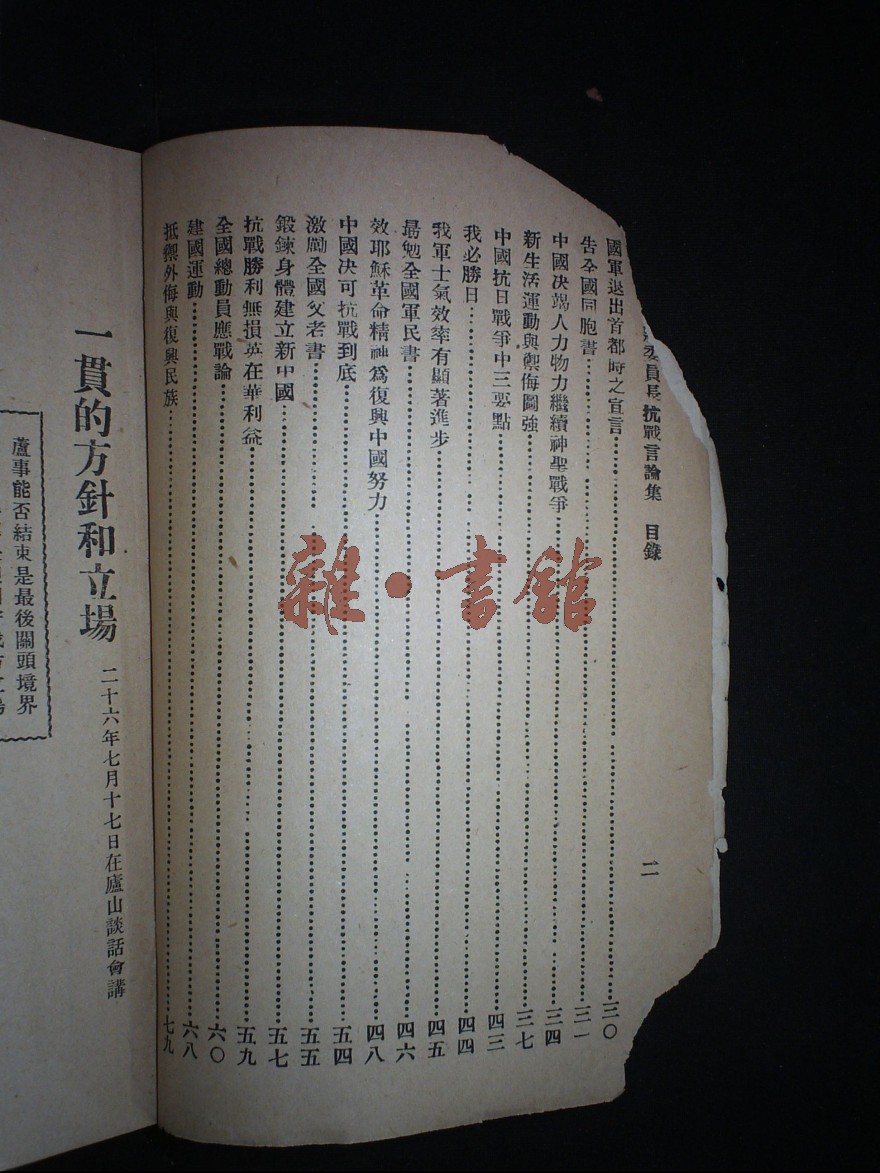 委員長抗戰言論集 目錄 二
國軍退出首都時之宣言 三〇
告全國同胞書 三一
中國決竭人力物力繼續神聖戰爭 三四
新生活運動與禦侮圖強 三七
中國抗日戰爭中三要點 四三
我必勝日 四四
我軍士氣效率有顯著進步 四五
勗勉全國軍民書 四六
效耶穌革命精神爲復興中國努力 四八
中國決可抗戰到底 五四
激勵全國父老書 五五
鍛鍊身體建立新中國 五七
抗戰勝利無損英在華利益 五九
全國總動員應戰論 六〇
建國運動 六八
抵禦外侮與復興民族 七九
二十六年七月十七日在廬山談話會講
一貫的方針和立場
蘆事能否結束是最後關頭境界
雜·書館